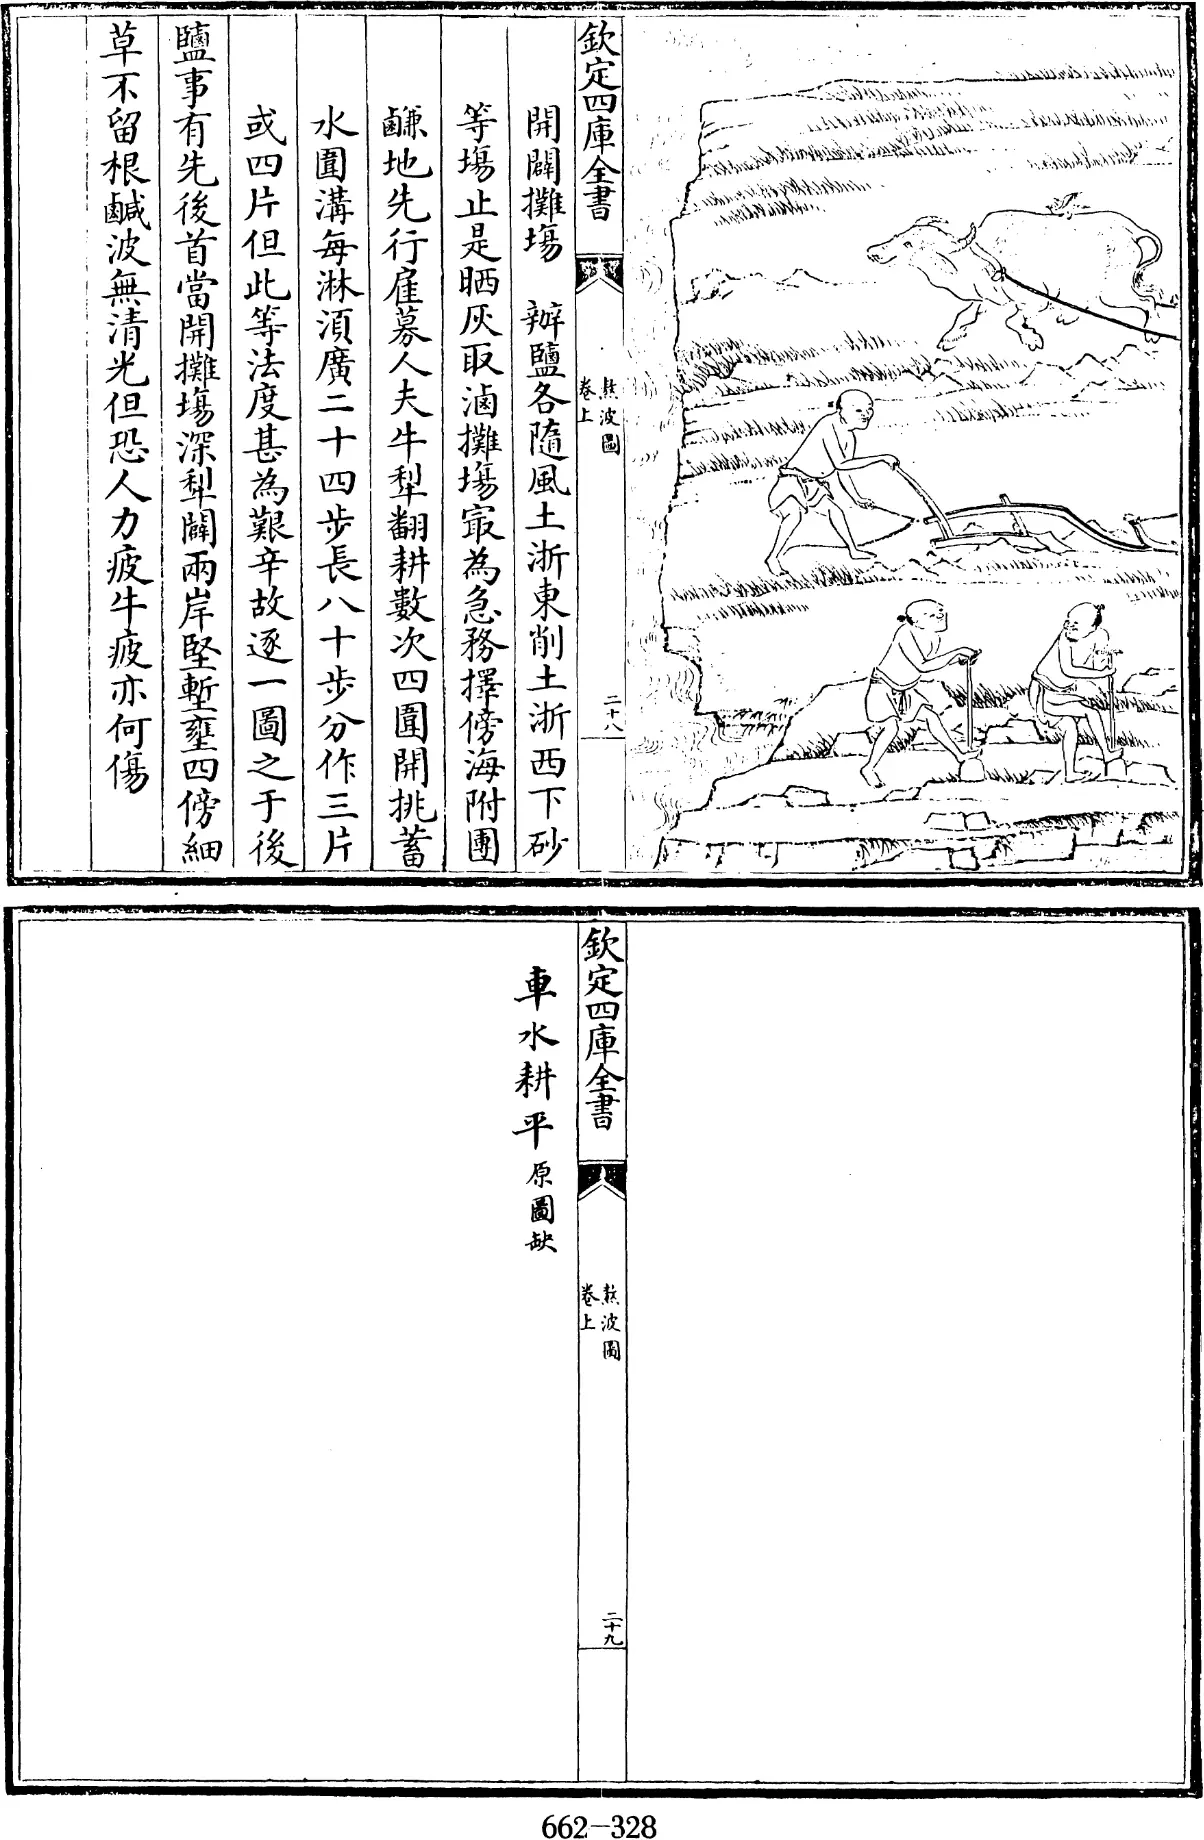 欽定四庫全書
熬波圖
卷上
二十八
開闢攤塲　辦鹽各隨風土浙東削土浙西下砂
等塲止是晒灰取滷攤塲㝡為急務擇傍海附團
鹻地先行雇募人夫牛犁翻耕數次四圍開挑蓄
水圍溝每淋須廣二十四步長八十步分作三片
或四片但此等法度甚為艱辛故逐一圖之于後
鹽事有先後首當開攤塲深犁闢兩岸堅塹壅四傍細
草不留根鹹波無清光但恐人力疲牛疲亦何傷
欽定四庫全書
熬波圖
卷上
二十九
車水耕平原圖缺
662-328